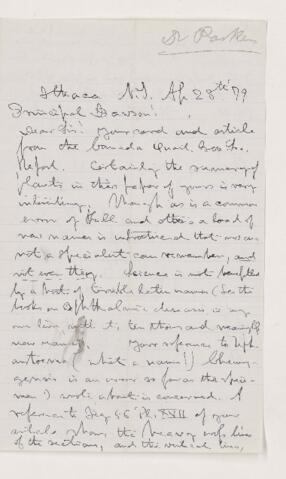 Dr Parks
Ithaca N.Y. Ap 28th 79
Principal Dawson!
Dear Sir! Your card and article
from the Canada Quat.
Report. Certainly the summary of
plants in this paper of yours is very
interesting. Though as is a common
error of Hall and others a load of
new names is introduced that
not a specialist can remember, and
not even they. Science is not benefited
by a host of terrible latin names (See the
books on Ophthalmic diseases in any
ten thousand
new names. Your reference to
(what a name!!)
genesis is an error so far as the
men I wrote about is concerned. A
reference to Fig 46 Pl. XVII of your
article shows the
of the sections, and the vertical lines,